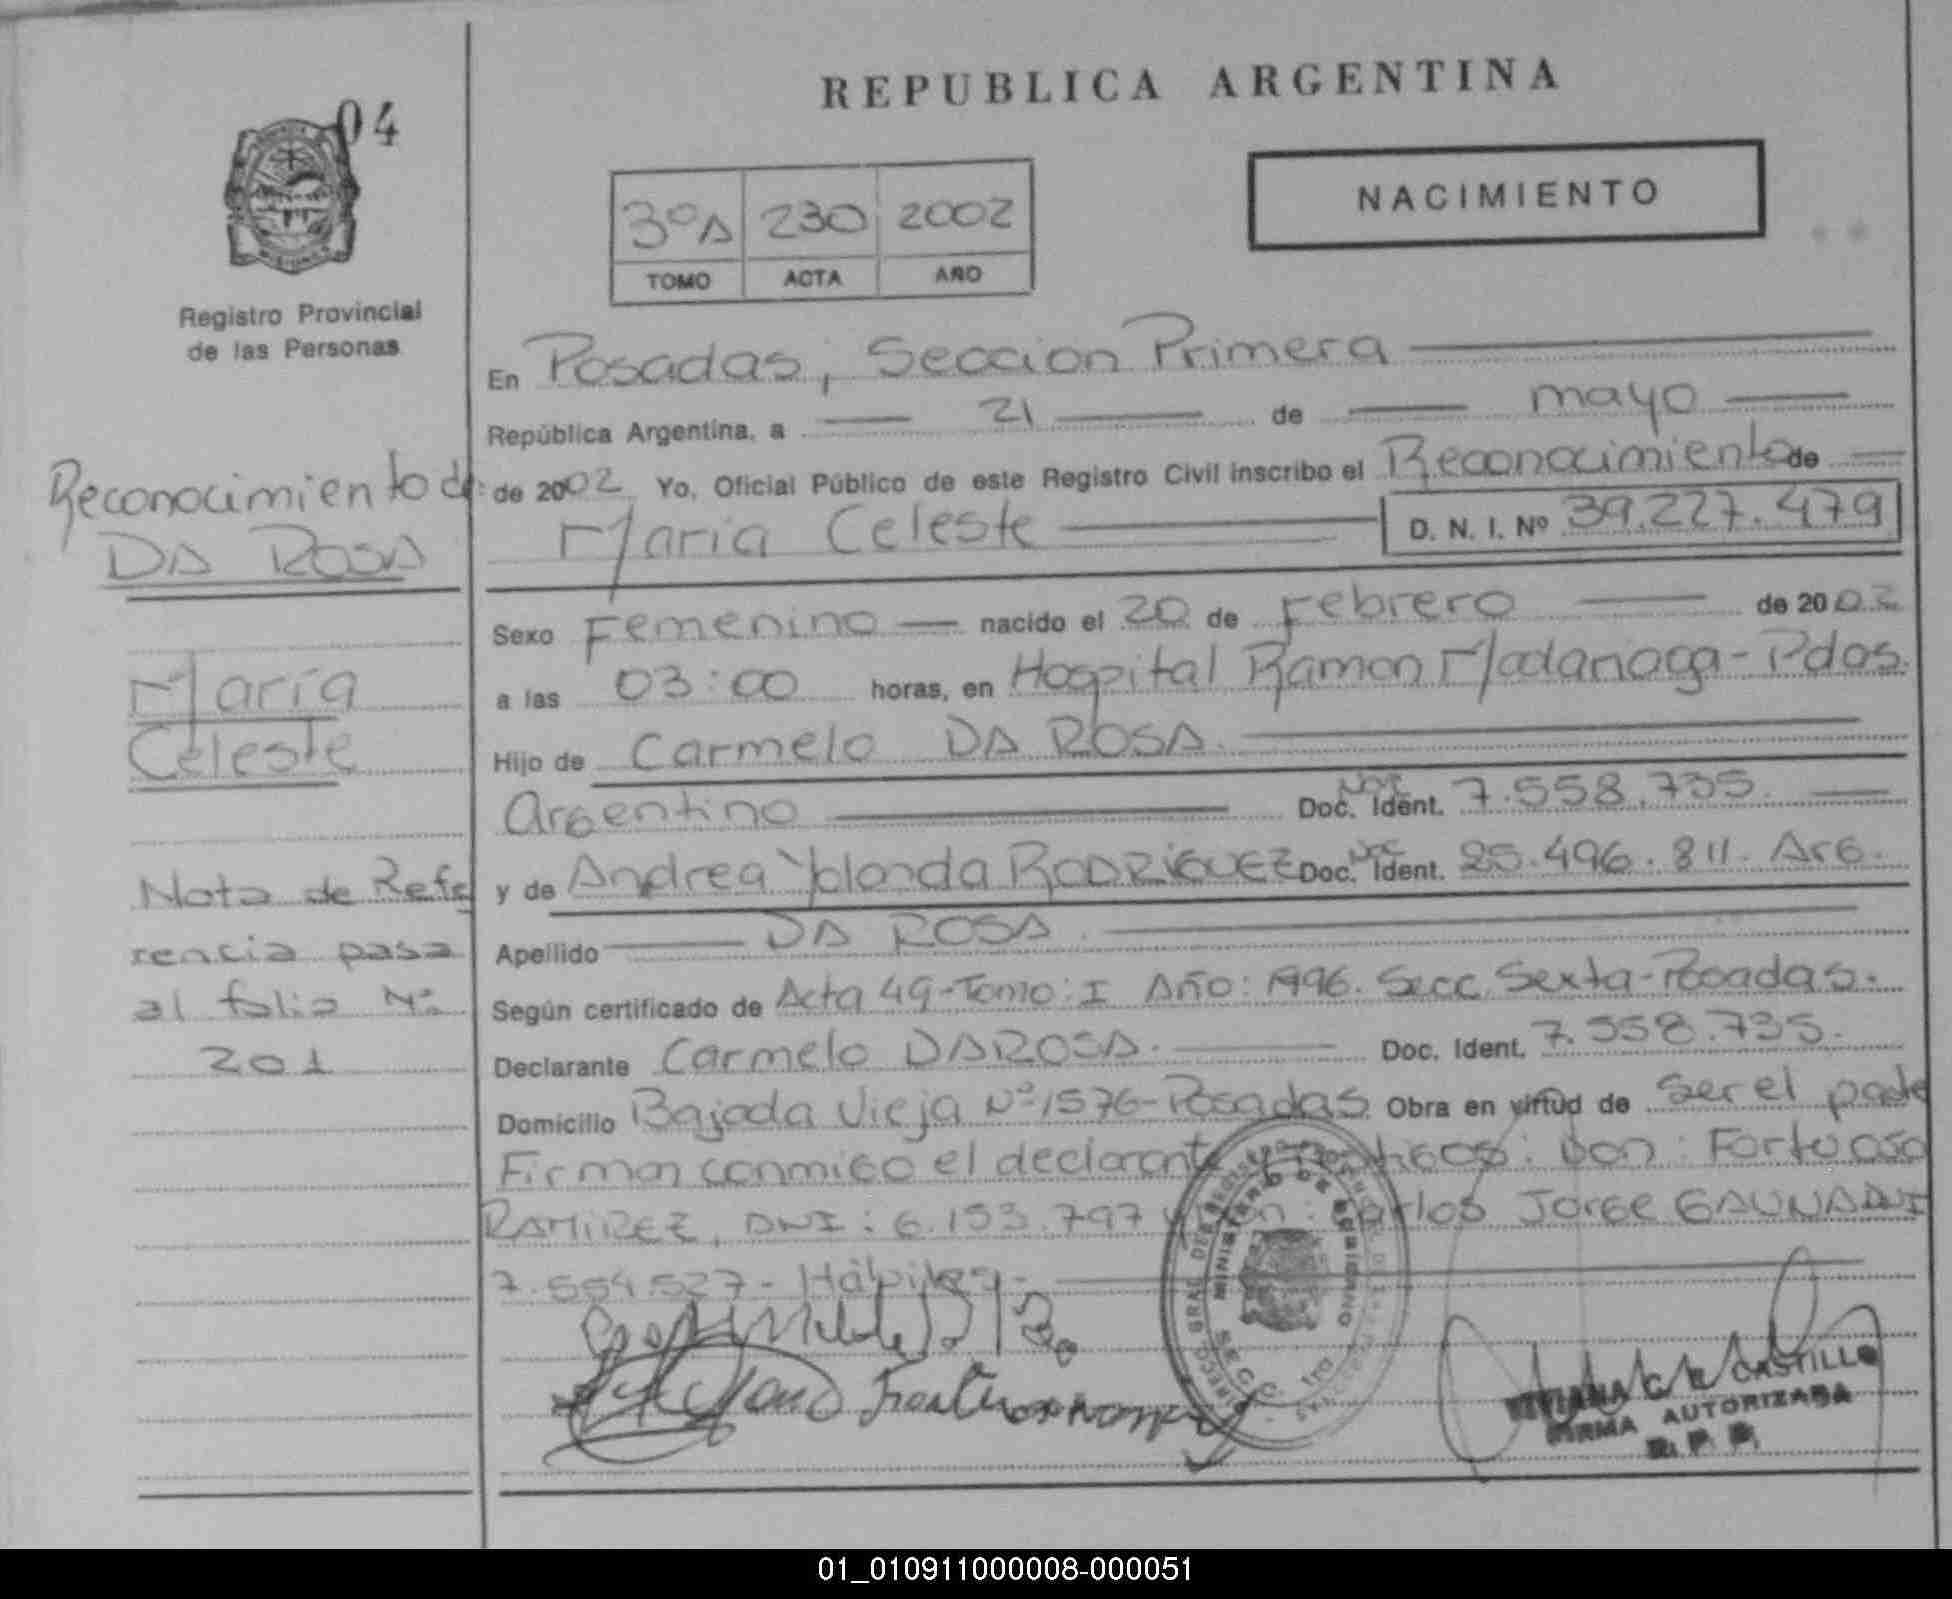 04
REPUBLICA ARGENTINA
NACIMIENTO
3ºA 230 2002
TOMO ACTA AÑO
Registro Provincial
de las Personas
En Posadas, Seccion Primera
República Argentina, a 21 de mayo
de 2002 Yo, Oficial Público de este Registro Civil inscribo el Reconocimiento de
Maria Celeste D. N. I. Nº 39.227.479
Reconocimiento de
DA ROSA
María
Celeste
Nota de Refe
rencia pasa
al folio Nº
201
Sexo Femenino nacido el 20 de Febrero de 2002
a las 03:00 horas, en Hospital Ramon Madariaga - Pdas.
Hijo de Carmelo DA ROSA.
Argentino Doc. Ident. 7.558.735.
y de Andrea Yolanda RODRIGUEZ Doc. Ident. 25.496.811. Arg.
Apellido DA ROSA.
Según certificado de Acta 49-Tomo: I Año: 1996. Secc. Sexta-Posadas.
Declarante Carmelo DA ROSA. Doc. Ident. 7.558.735.
Domicilio Bajada Vieja Nº 1576-Posadas Obra en virtud de Ser el padre
Firman conmigo el declarante y testigos: Don: Fortuoso
RAMIREZ, DNI: 6.153.797 y Don: Carlos Jorge GAUNA DNI
7.554.527- Hábiles-
MINISTERIO DE GOBIERNO
VIVIANA C. R. CASTILLO
FIRMA AUTORIZADA
R. P. P.
01_010911000008-000051